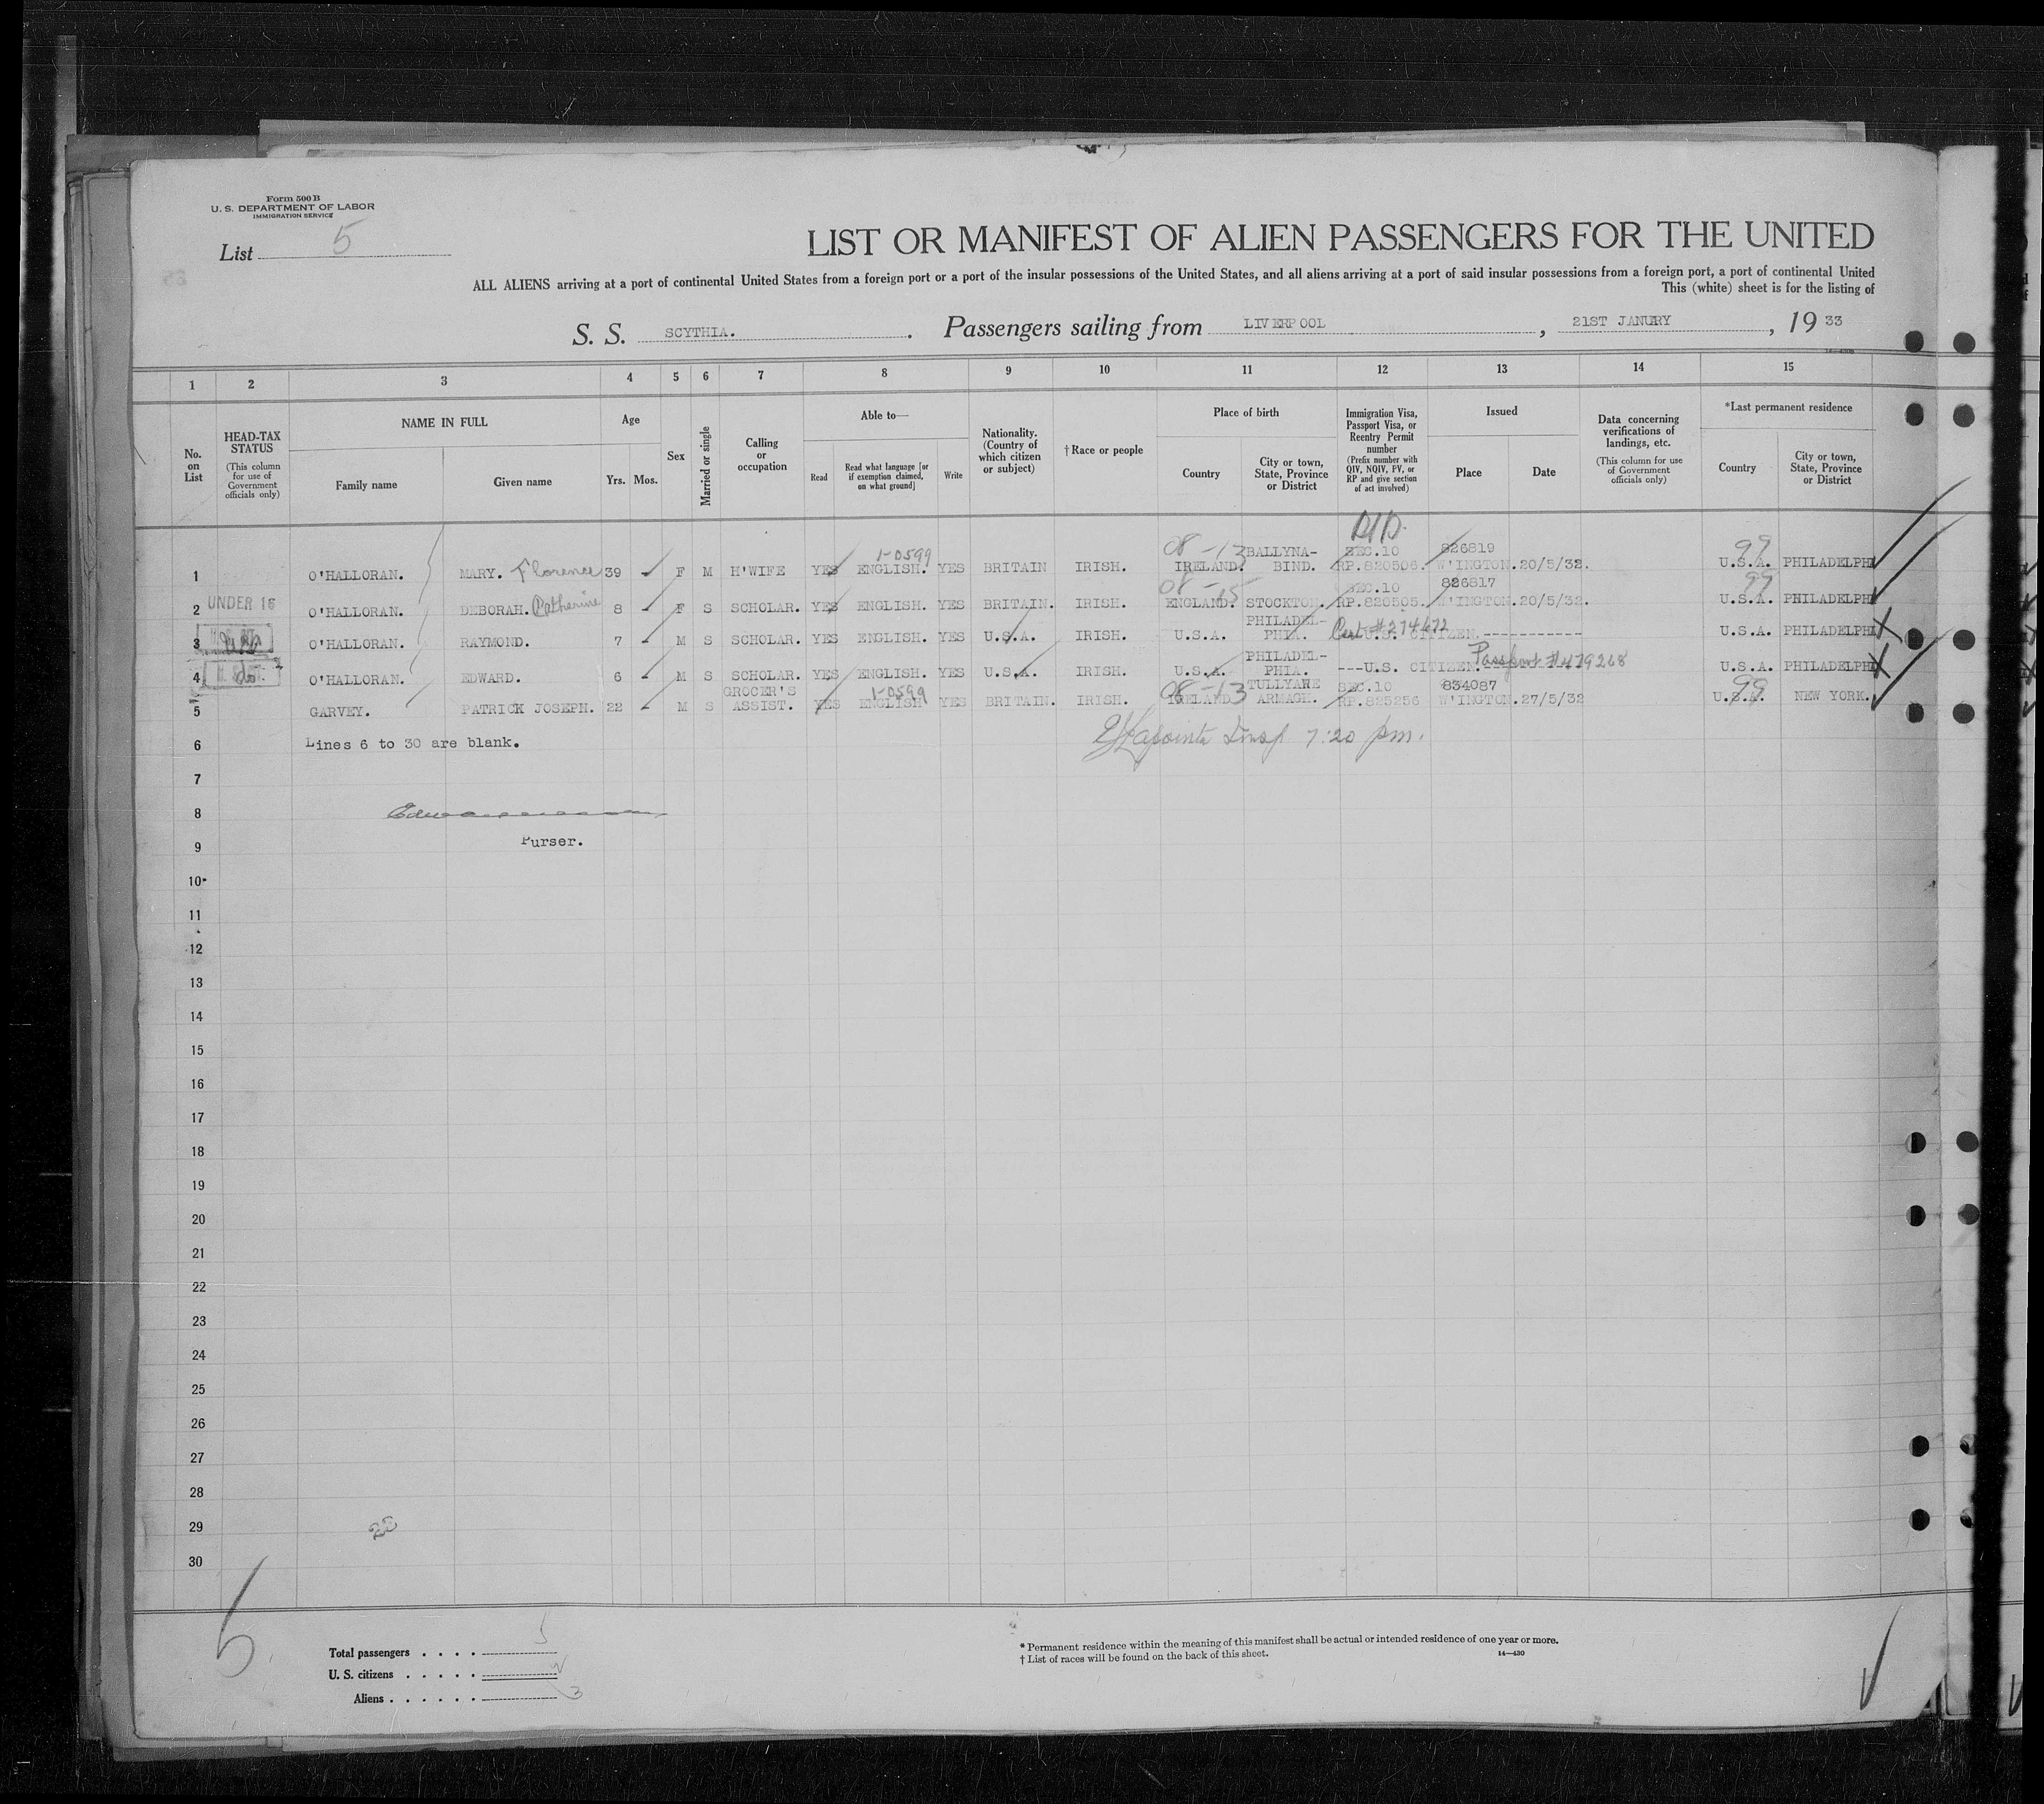 Form 500 B
U. S. DEPARTMENT OF LABOR
IMMIGRATION SERVICE
List 5
LIST OR MANIFEST OF ALIEN PASSENGERS FOR THE UNITED
ALL ALIENS arriving at a port of continental United States from a foreign port or a port of the insular possessions of the United States, and all aliens arriving at a port of said insular possessions from a foreign port, a port of continental United
This (white) sheet is for the listing of
S. S. SCYTHIA. . Passengers sailing from LIVERPOOL , 21ST JANURY , 19 33
1 2 3 4 5 6 7 8 9 10 11 12 13 14 15
No. on List
HEAD-TAX STATUS (This column for use of Government officials only)
NAME IN FULL
Family name Given name
Age
Yrs. Mos.
Sex
Married or single
Calling or occupation
Able to—
Read
Read what language [or if exemption claimed, on what ground]
Write
Nationality. (Country of which citizen or subject)
† Race or people
Place of birth
Country
City or town, State, Province or District
Immigration Visa, Passport Visa, or Reentry Permit number (Prefix number with QIV, NQIV, PV, or RP and give section of act involved)
Issued
Place Date
Data concerning verifications of landings, etc. (This column for use of Government officials only)
*Last permanent residence
Country
City or town, State, Province or District
1-0599 08-13 BALLYNA- SEC.10 826819 99
1 O'HALLORAN. MARY. Florence 39 F M H'WIFE YES ENGLISH. YES BRITAIN IRISH. IRELAND. BIND. RP.820506. W'INGTON. 20/5/32. U.S.A. PHILADELPHI
08-15 SEC.10 826817 99
2 UNDER 16 O'HALLORAN. DEBORAH. Catherine 8 F S SCHOLAR. YES ENGLISH. YES BRITAIN. IRISH. ENGLAND. STOCKTON. RP.820505. W'INGTON. 20/5/32. U.S.A. PHILADELPHI
PHILADEL- Cert #274672
3 O'HALLORAN. RAYMOND. 7 M S SCHOLAR. YES ENGLISH. YES U.S.A. IRISH. U.S.A. PHIA. U.S. CITIZEN.------------ U.S.A. PHILADELPHI
PHILADEL- Passport #479268
4 O'HALLORAN. EDWARD. 6 M S SCHOLAR. YES ENGLISH. YES U.S.A. IRISH. U.S.A. PHIA. ---U.S. CITIZEN. U.S.A. PHILADELPHI
GROCER'S 1-0599 08-13 SEC.10 834087 99
5 GARVEY. PATRICK JOSEPH. 22 M S ASSIST. YES ENGLISH YES BRITAIN. IRISH. IRELAND ARMAGH. RP.825256 W'INGTON. 27/5/32 U.S.A. NEW YORK.
6 Lines 6 to 30 are blank. Lapointe Insp 7:20 pm.
7
8
9 Purser.
10
11
12
13
14
15
16
17
18
19
20
21
22
23
24
25
26
27
28
29
30
Total passengers . . . . 5
U. S. citizens . . . . . 2
Aliens . . . . . . 3
* Permanent residence within the meaning of this manifest shall be actual or intended residence of one year or more.
† List of races will be found on the back of this sheet. 14—430